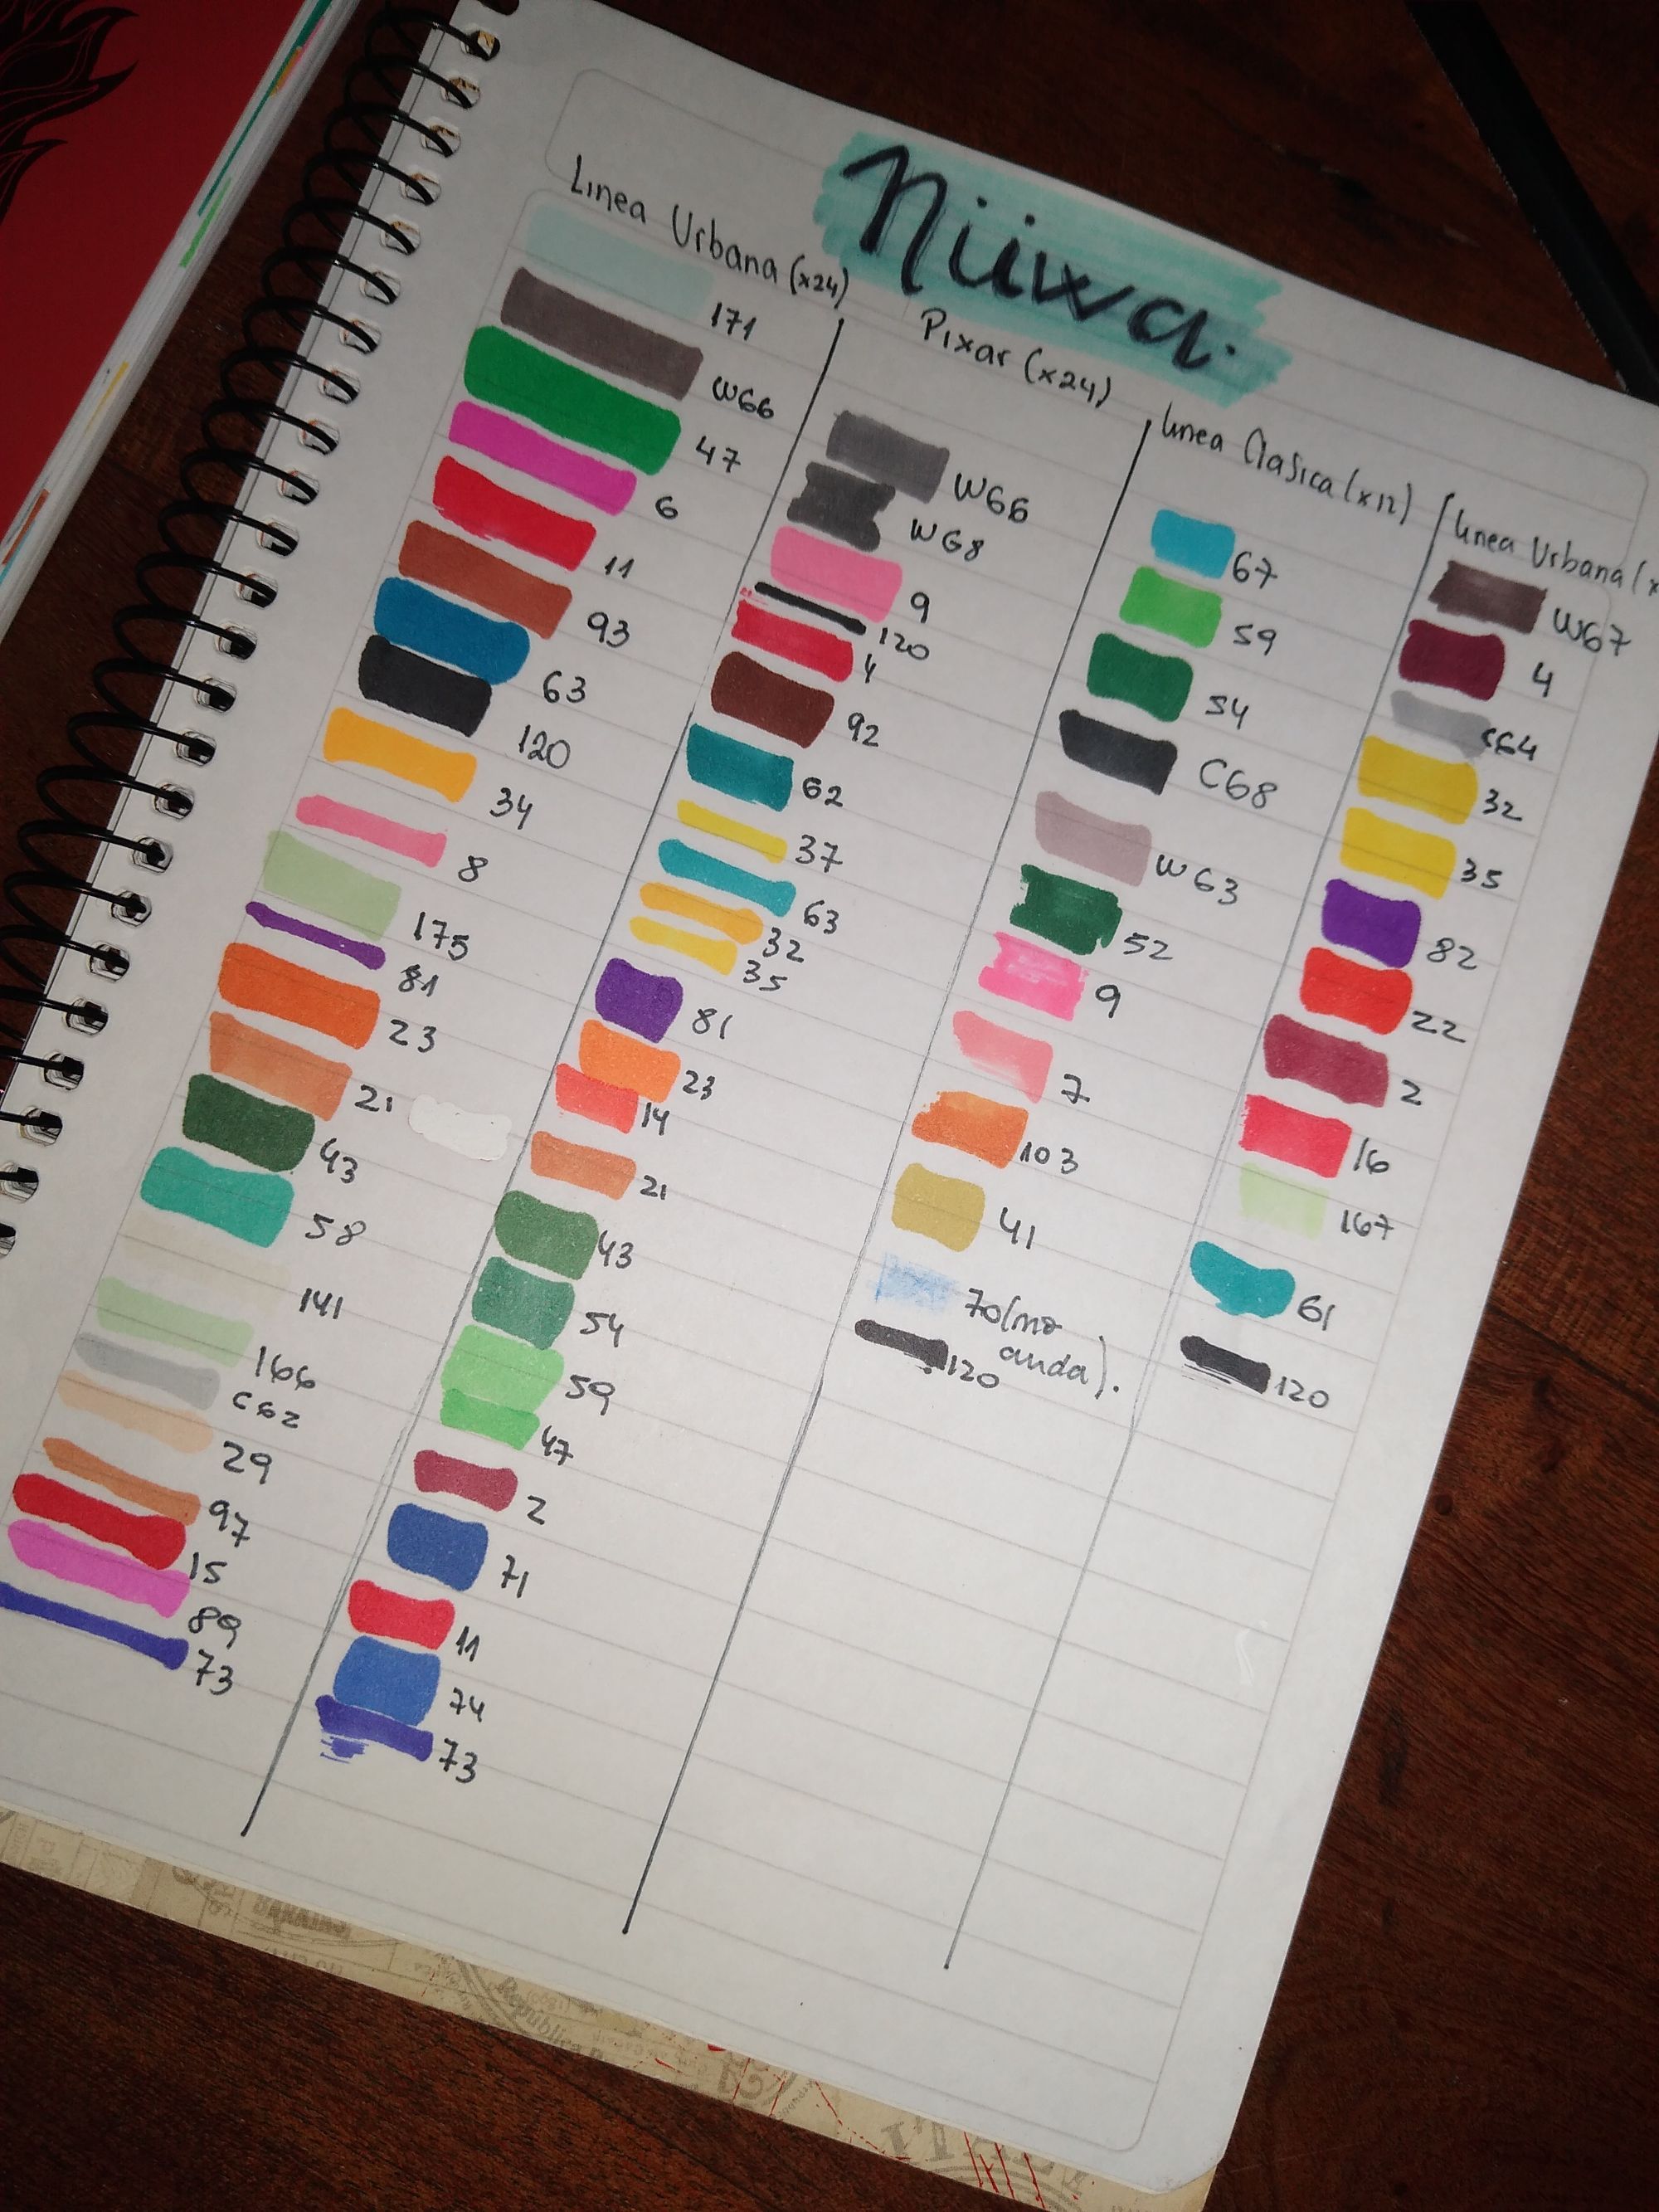 Nüwa.
Linea Urbana (x24)
171
W66
47
6
11
93
63
120
34
8
175
81
23
21
43
58
141
166
C62
29
97
15
89
73
Pixar (x24)
W66
W68
9
120
4
92
62
37
63
32
35
81
23
14
21
43
54
59
47
2
71
11
74
73
Linea Clasica (x12)
67
59
54
C68
W63
52
9
7
103
41
70 (no
anda).
120
Linea Urbana (x
W67
4
C64
32
35
82
22
2
16
167
61
120